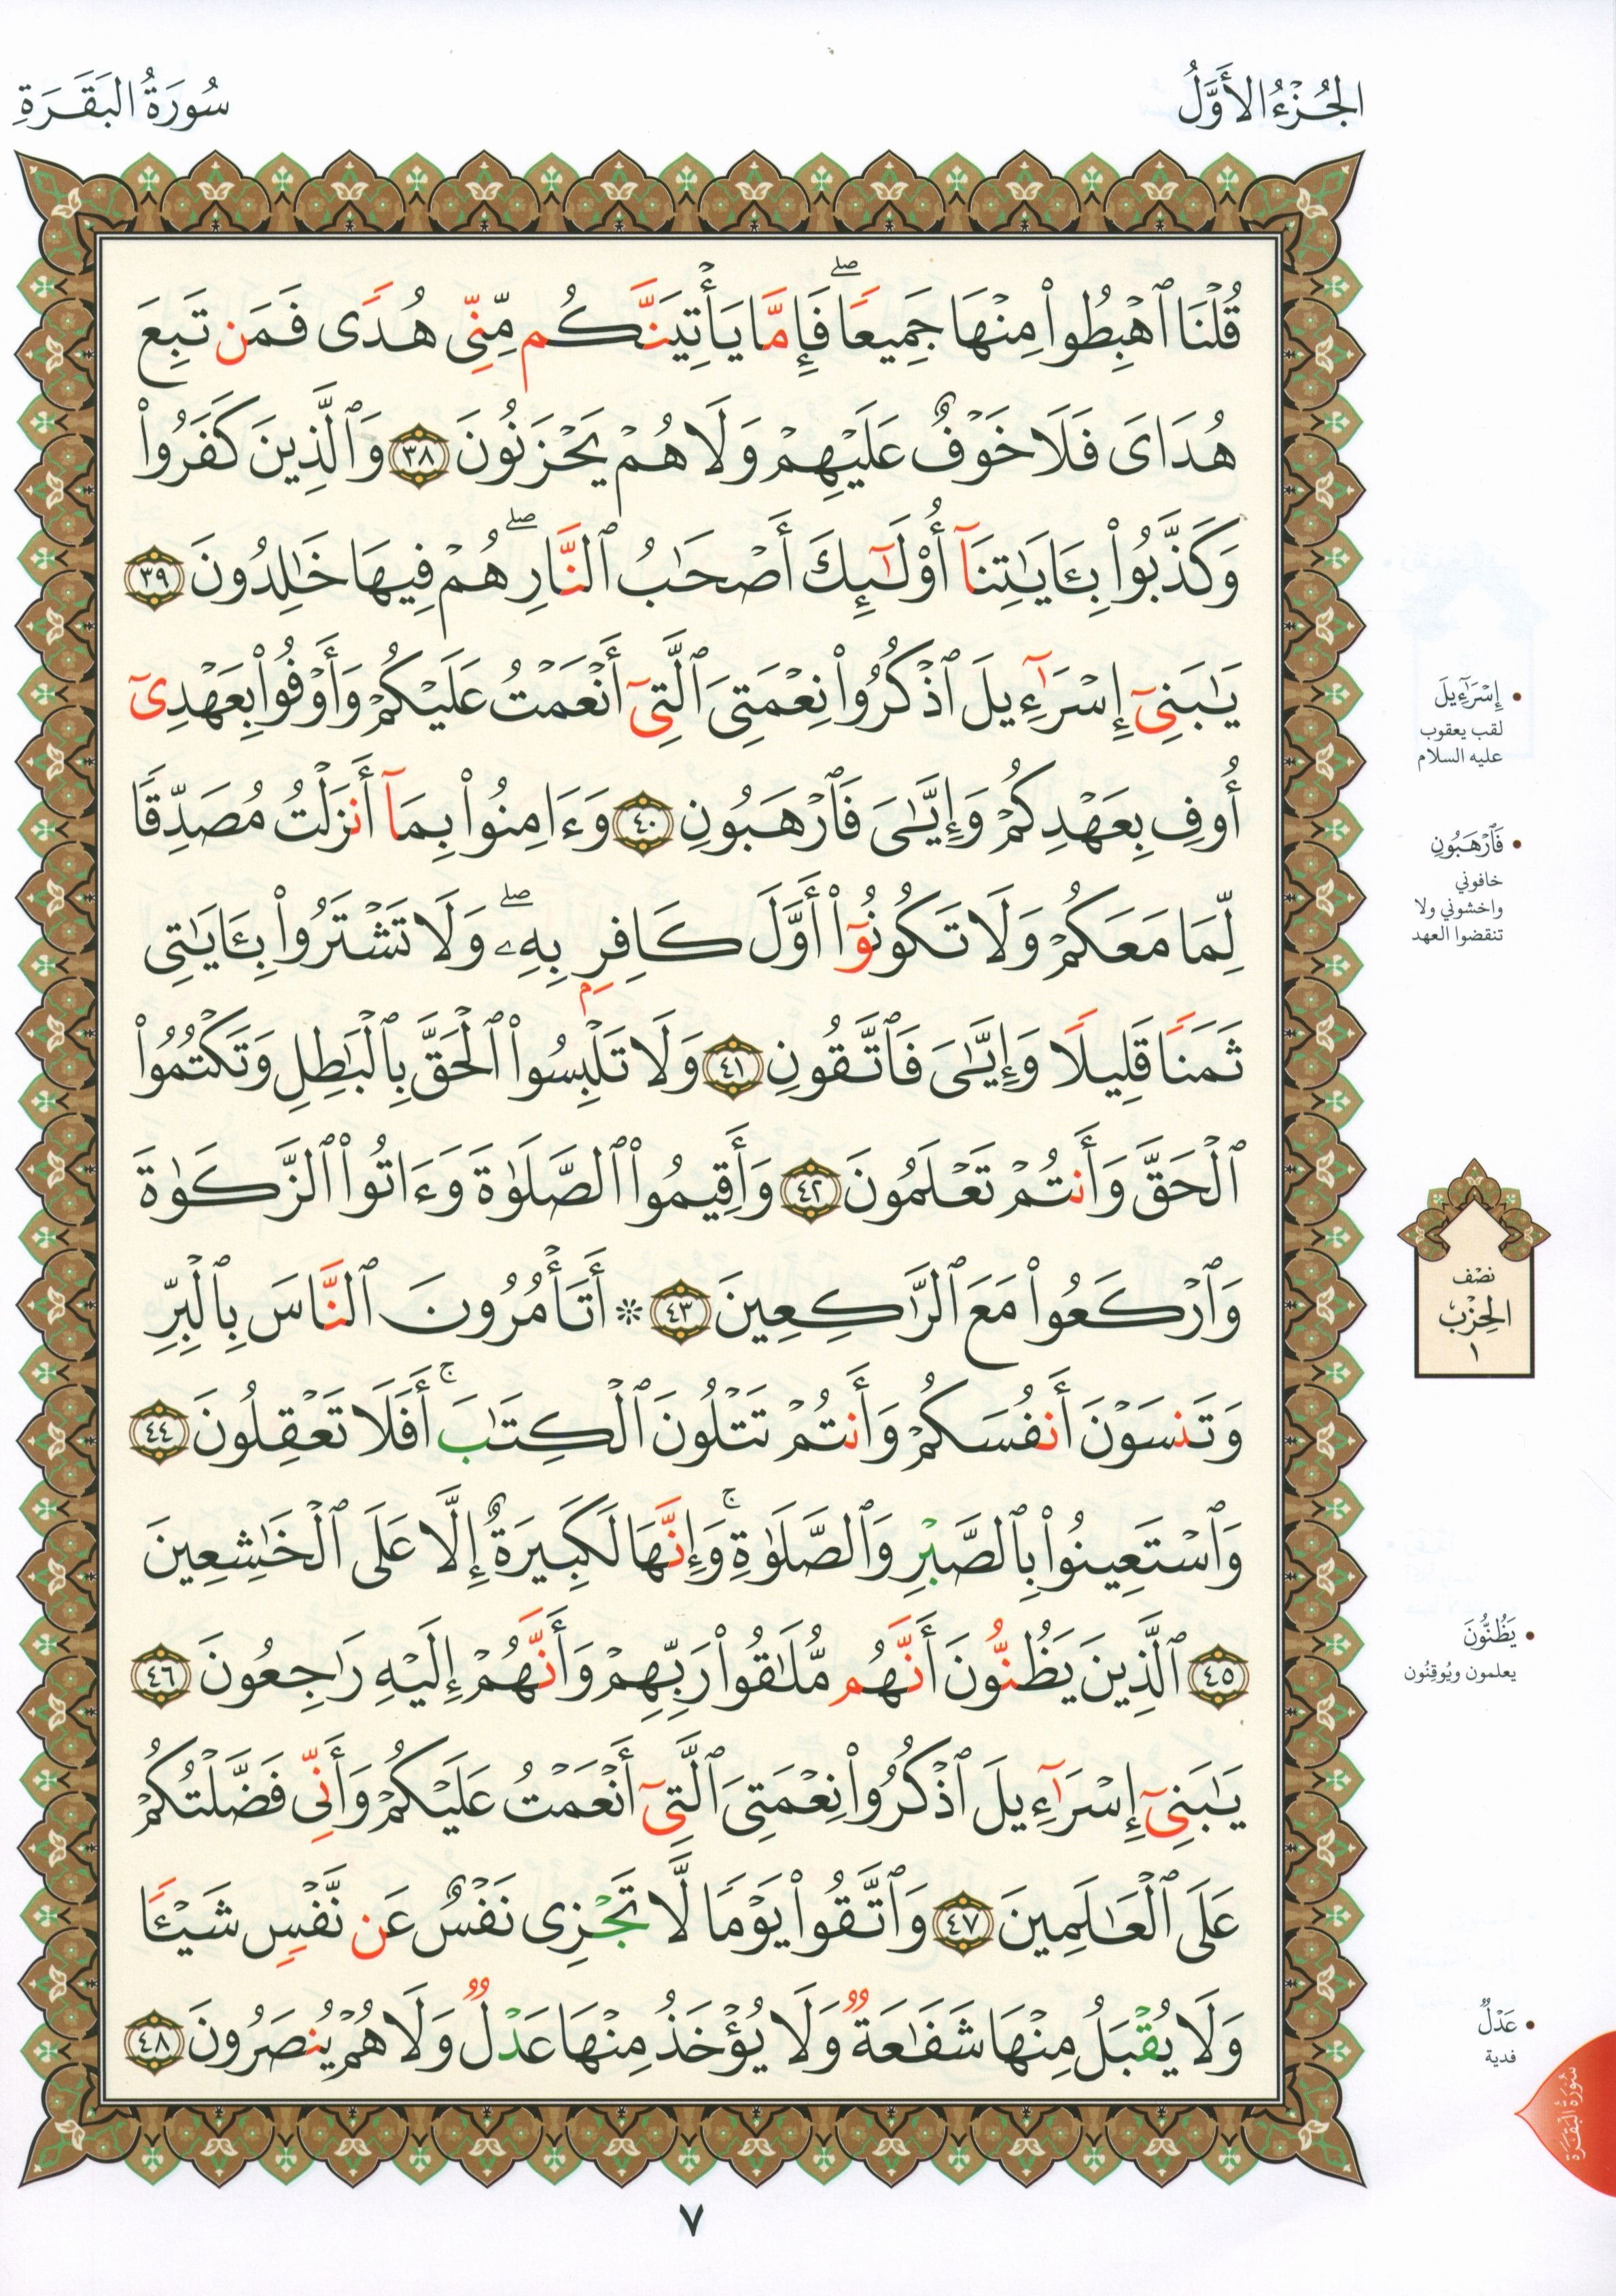 الجُزْءُ الأَوَّلُ
سُورَةُ البَقَرَةِ
قُلْنَا ٱهْبِطُوا۟ مِنْهَا جَمِيعًا ۖ فَإِمَّا يَأْتِيَنَّكُم مِّنِّى هُدًى فَمَن تَبِعَ
هُدَاىَ فَلَا خَوْفٌ عَلَيْهِمْ وَلَا هُمْ يَحْزَنُونَ ٣٨ وَٱلَّذِينَ كَفَرُوا۟
وَكَذَّبُوا۟ بِـَٔايَـٰتِنَآ أُو۟لَـٰٓئِكَ أَصْحَـٰبُ ٱلنَّارِ ۖ هُمْ فِيهَا خَـٰلِدُونَ ٣٩
يَـٰبَنِىٓ إِسْرَٰٓءِيلَ ٱذْكُرُوا۟ نِعْمَتِىَ ٱلَّتِىٓ أَنْعَمْتُ عَلَيْكُمْ وَأَوْفُوا۟ بِعَهْدِىٓ
أُوفِ بِعَهْدِكُمْ وَإِيَّـٰىَ فَٱرْهَبُونِ ٤٠ وَءَامِنُوا۟ بِمَآ أَنزَلْتُ مُصَدِّقًا
لِّمَا مَعَكُمْ وَلَا تَكُونُوٓا۟ أَوَّلَ كَافِرٍۭ بِهِۦ ۖ وَلَا تَشْتَرُوا۟ بِـَٔايَـٰتِى
ثَمَنًا قَلِيلًا وَإِيَّـٰىَ فَٱتَّقُونِ ٤١ وَلَا تَلْبِسُوا۟ ٱلْحَقَّ بِٱلْبَـٰطِلِ وَتَكْتُمُوا۟
ٱلْحَقَّ وَأَنتُمْ تَعْلَمُونَ ٤٢ وَأَقِيمُوا۟ ٱلصَّلَوٰةَ وَءَاتُوا۟ ٱلزَّكَوٰةَ
وَٱرْكَعُوا۟ مَعَ ٱلرَّٰكِعِينَ ٤٣ ۞ أَتَأْمُرُونَ ٱلنَّاسَ بِٱلْبِرِّ
وَتَنسَوْنَ أَنفُسَكُمْ وَأَنتُمْ تَتْلُونَ ٱلْكِتَـٰبَ ۚ أَفَلَا تَعْقِلُونَ ٤٤
وَٱسْتَعِينُوا۟ بِٱلصَّبْرِ وَٱلصَّلَوٰةِ ۚ وَإِنَّهَا لَكَبِيرَةٌ إِلَّا عَلَى ٱلْخَـٰشِعِينَ
٤٥ ٱلَّذِينَ يَظُنُّونَ أَنَّهُم مُّلَـٰقُوا۟ رَبِّهِمْ وَأَنَّهُمْ إِلَيْهِ رَٰجِعُونَ ٤٦
يَـٰبَنِىٓ إِسْرَٰٓءِيلَ ٱذْكُرُوا۟ نِعْمَتِىَ ٱلَّتِىٓ أَنْعَمْتُ عَلَيْكُمْ وَأَنِّى فَضَّلْتُكُمْ
عَلَى ٱلْعَـٰلَمِينَ ٤٧ وَٱتَّقُوا۟ يَوْمًا لَّا تَجْزِى نَفْسٌ عَن نَّفْسٍ شَيْـًٔا
وَلَا يُقْبَلُ مِنْهَا شَفَـٰعَةٌ وَلَا يُؤْخَذُ مِنْهَا عَدْلٌ وَلَا هُمْ يُنصَرُونَ ٤٨
• إِسْرَٰٓءِيلَ
لقب يعقوب
عليه السلام
• فَٱرْهَبُونِ
خافوني
واخشوني ولا
تنقضوا العهد
نصف
الحِزْب
١
• يَظُنُّونَ
يعلمون ويُوقِنُون
• عَدْلٌ
فدية
سُورَةُ الْبَقَرَةِ
٧